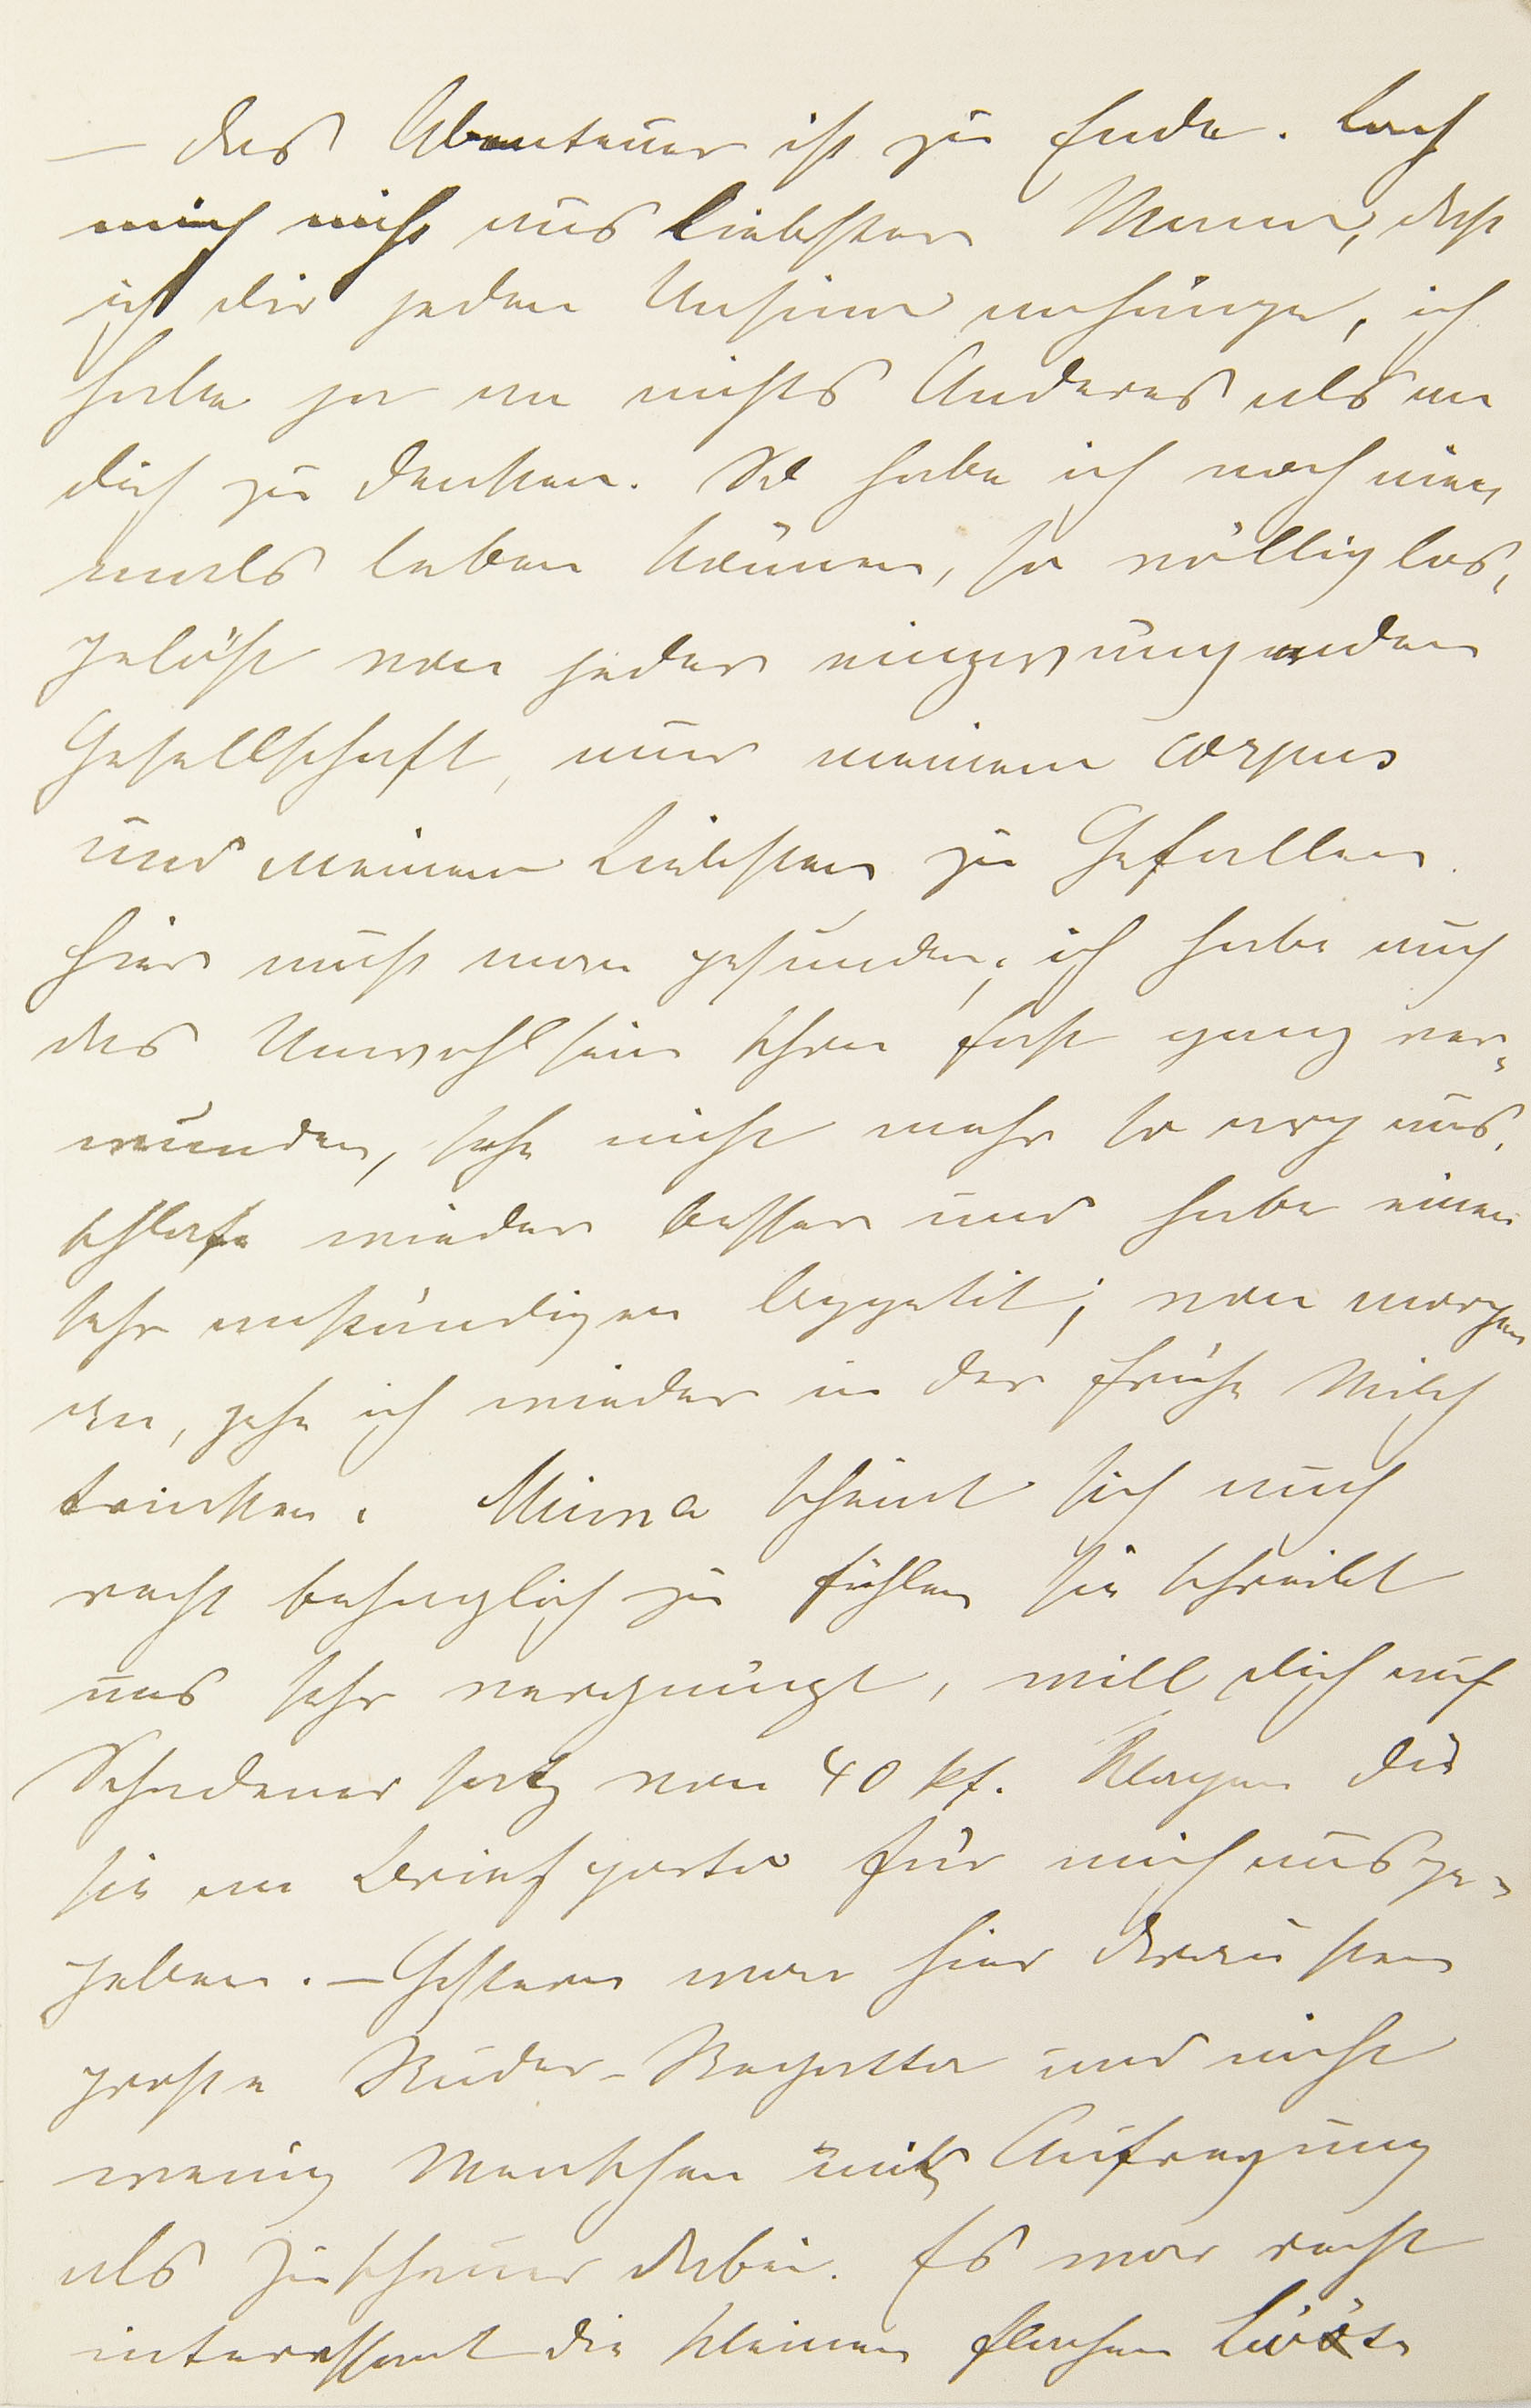 — das Abenteuer ist zu Ende. Lach
mich nicht aus liebster Mann, daß
ich dir jeden Unsinn anhänge, ich
habe ja an nichts Anderes als an
dich zu denken. So habe ich noch nie,
mals leben können, so völlig los,
gelöst von jeder einzwängenden
Gesellschaft, nur meinem corpus
und meinem Liebsten zu Gefallen.
Hier muß man gesunden; ich habe auch
das Unwohlsein schon fast ganz ver-
wunden, sehe nicht mehr so arg aus,
schlafe wieder besser und habe einen
sehr anständigen Appetit; von morgen
an, gehe ich wieder in der Frühe Milch
trinken. Minna scheint sich auch
recht behaglich zu fühlen sie schreibt
uns sehr vergnügt, will dich auf
Schadenersatz von 40 kf. klagen die
sie an Briefporto für mich ausge-
geben. — Gestern war hier draußen
große Ruder-Regatta und nicht
wenig Menschen und Aufregung
als Zuschauer dabei. Es war recht
interessant die kleinen flachen Boote